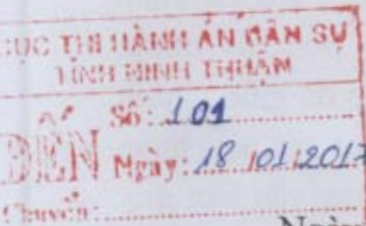 CỤC THI HÀNH ÁN DÂN SỰ
TỈNH NINH THUẬN
ĐẾN
Số: 101
Ngày: 18/01/2017
Chuyển: